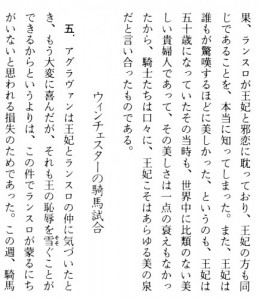 果、ランスロが王妃と邪恋に耽っており、王妃の方も同
じであることを、本当に知ってしまった。また、王妃は
誰もが驚嘆するほどに美しかった、というのも、王妃は
五十歳になっていたその当時も、世界中に比類のない美
しい貴婦人であって、その美しさは一点の衰えもなかっ
たから、騎士たちは口々に、王妃こそはあらゆる美の泉
だと言い合ったものである。
ウィンチェスターの騎馬試合
五. アグラヴァンは王妃とランスロの仲に気づいたと
き、もう大変に喜んだが、それも王の恥辱を雪ぐことが
できるからというよりは、この件でランスロが蒙るにち
がいないと思われる損失のためであった。この週、騎馬